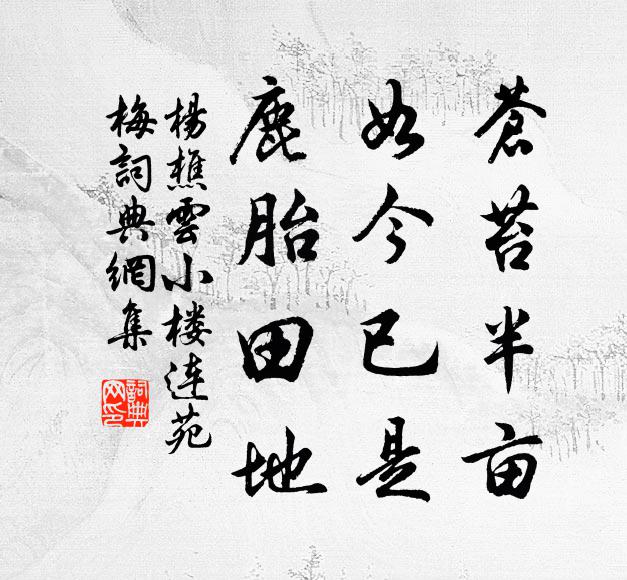 蒼苔半亩
如今已是
鹿胎田地
楊樵雲小楼连苑
梅詞典網集
詞典网印